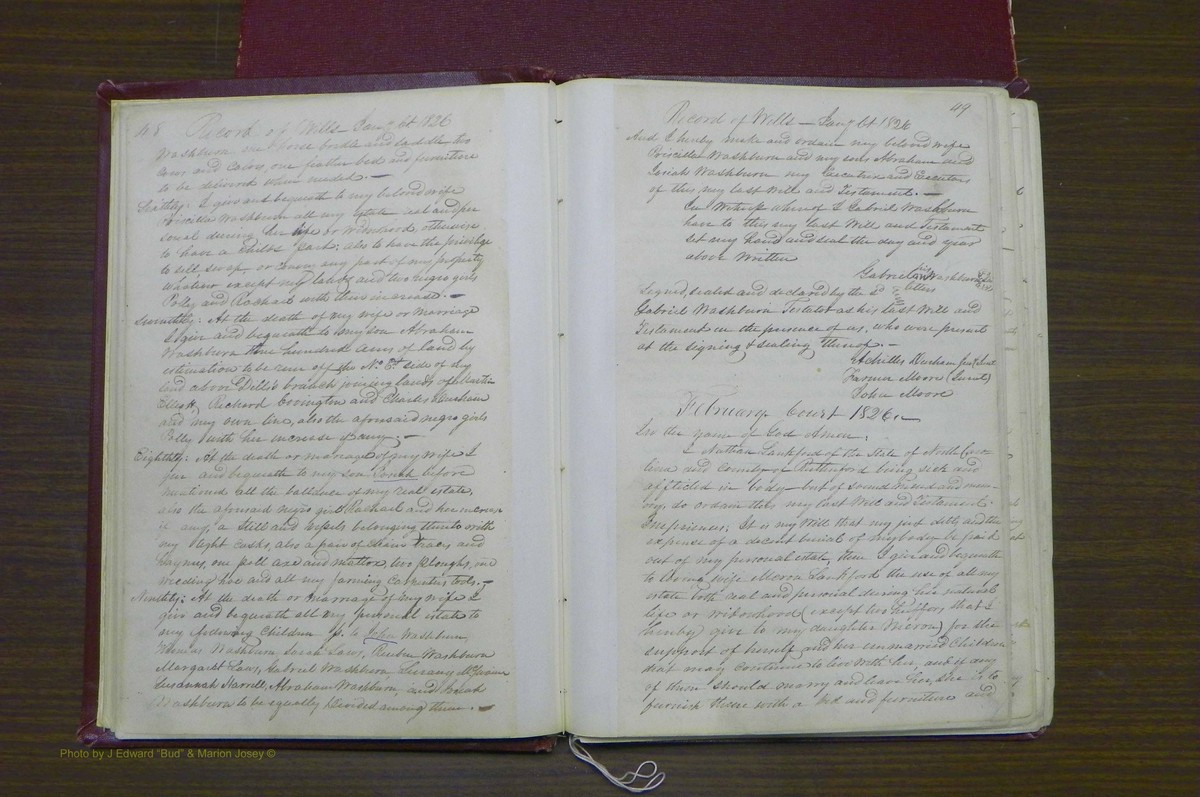 48 Record of Wills — Jany Ct 1826
Washburn one horse bridle and saddle two
cows and calves, one feather bed and furniture
to be delivered when needed. —
Sixthly: I give and bequeath to my beloved wife
Priscilla Washburn all my estate real and per
sonal during her life or widowhood, otherwise
to have a childs part; also to have the privilege
to sell swap, or convey any part of my property
whatever except my lands and two negro girls
Polly and Rachael with their increase. —
Seventhly: At the death of my wife or marriage
I give and bequeath to my son Abraham
Washburn hundred acres of land by
estimation to be run off the No. Et. side of my
land above branch joining lands of Martin
Elliott, Richard Covington and Charles Durham
and my own line, also the aforesaid negro girls
Polly with her increase if any, —
Eighthly: At the death or marriage of my wife I
give and bequeath to my son before
mentioned all the ballance of my real estate,
also the aforesaid negro girl Rachael and her increase
if any, a still and vessels belonging thereto with
my eight casks, also a pair of chain traces and
haymes, one poll axe and mattox, two ploughs, one
weeding hoe and all my farming carpenters tools. —
Ninethly: At the death or marriage of my wife I
give and bequeath all my personal estate to
my following children to John Washburn,
Washburn, Sarah Laws, Reuben Washburn
Margaret Laws, Gabriel Washburn,
Susannah Harrell, Abraham Washburn, and
Washburn to be equally devided among them. —
49
Record of Wills — Jany Ct 1826
And I hereby make and ordain my beloved wife
Priscilla Washburn and my sons Abraham and
Josiah Washburn my Executrix and Executors
of this my last Will and Testament. —
In Witness whereof I Gabriel Washburn
have to this my last Will and Testament
set my hand and seal the day and year
above Written
Gabriel his Washburn
Signed, sealed and declared by the sd
Gabriel Washburn Testator as his last Will and
Testament in the presence of us, who were present
at the signing & sealing thereof. —
Achilles Durham
Moore (Jurat)
John Moore
February Court 1826
In the name of God Amen,
I Nathan Lankford of the State of North Caro
lina and County of Rutherford being sick and
afflicted in body but of sound mind and mem-
ory, do ordain this my last Will and Testament.
Imprimis, It is my Will that my just debts and the
expense of a decent burial of my body be paid
out of my personal estate, then I give and bequeath
to loving wife Lankford the use of all my
estate both real and personal during her natural
life or widowhood (except two heiffers that I
hereby give to my daughter) for the
support of herself and her unmarried children
that may continue to live with her, and if any
of them should marry and leave her, she is to
furnish them with a bed and furniture and
Photo by J Edward "Bud" & Marion Josey ©